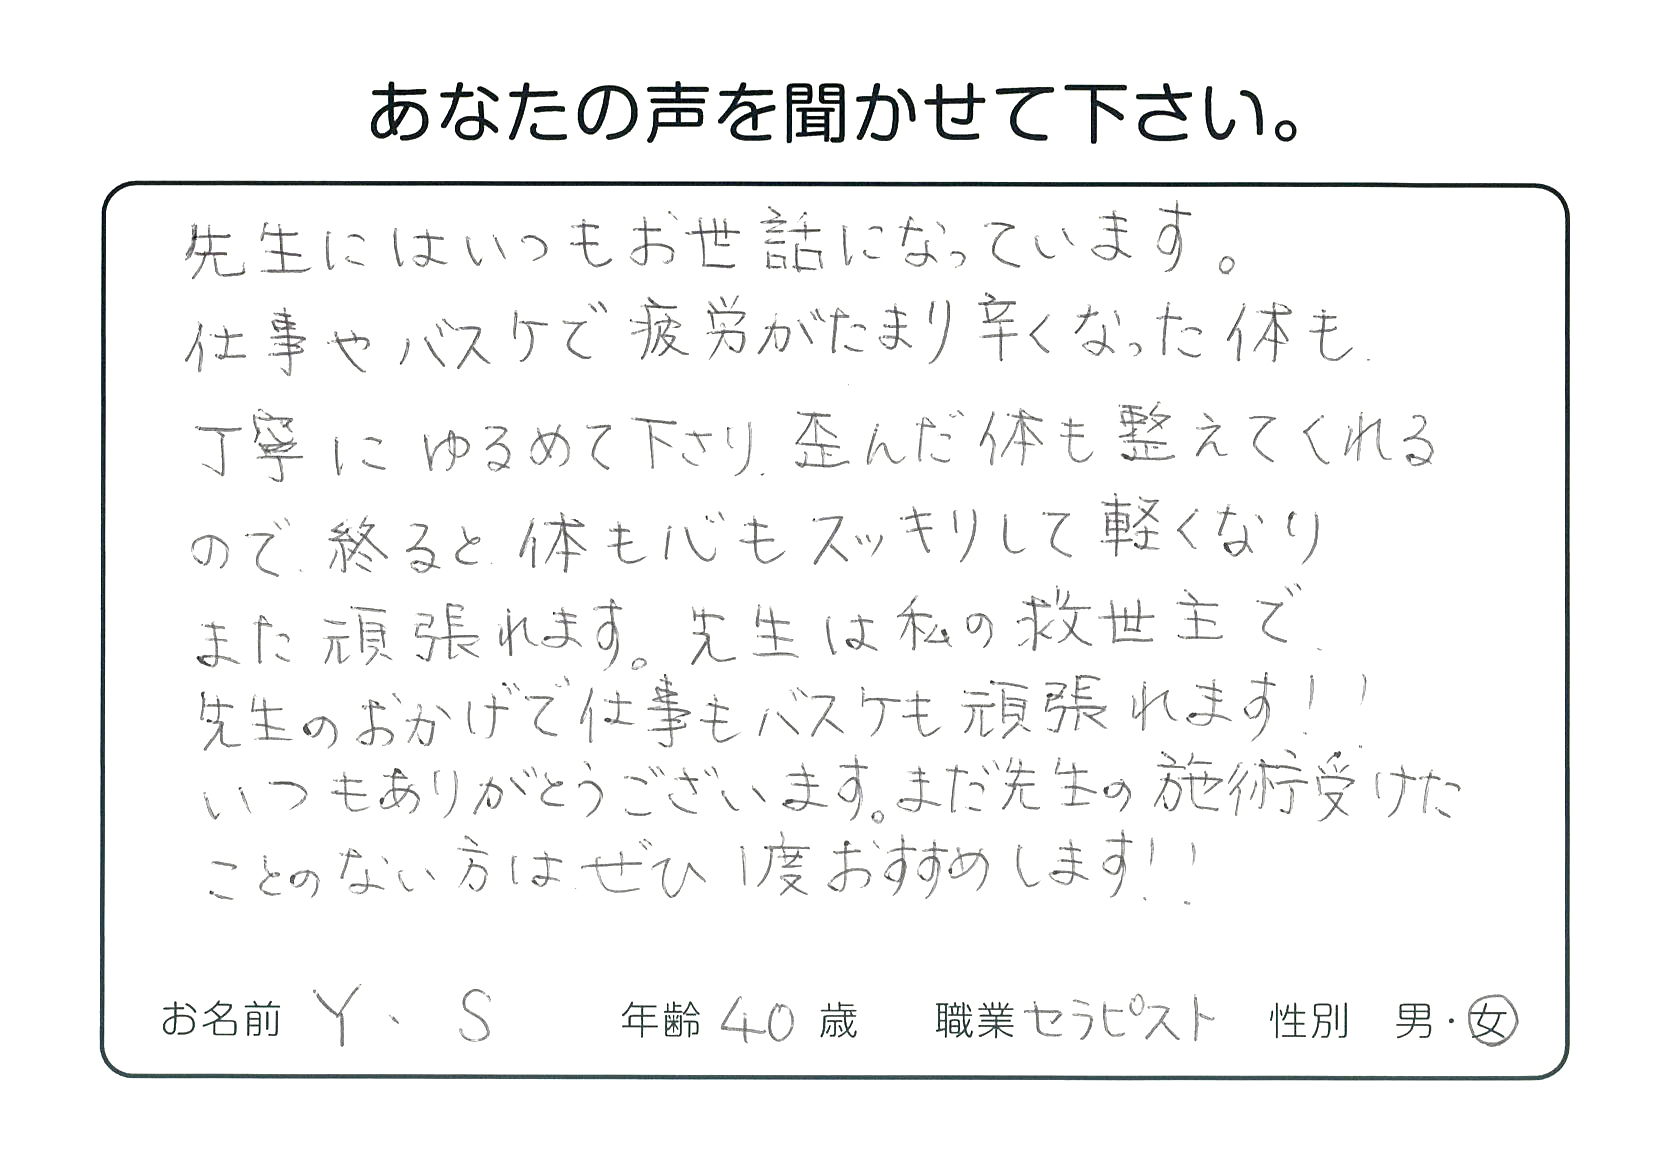 あなたの声を聞かせて下さい。
先生にはいつもお世話になっています。
仕事やバスケで疲労がたまり辛くなった体も、
丁寧にゆるめて下さり、歪んだ体も整えてくれる
ので、終ると、体も心もスッキリして軽くなり
また頑張れます。先生は私の救世主で、
先生のおかげで仕事もバスケも頑張れます!!
いつもありがとうございます。まだ先生の施術受けた
ことのない方はぜひ1度おすすめします!!
お名前 Y・S 年齢 40 歳 職業 セラピスト 性別 男・女